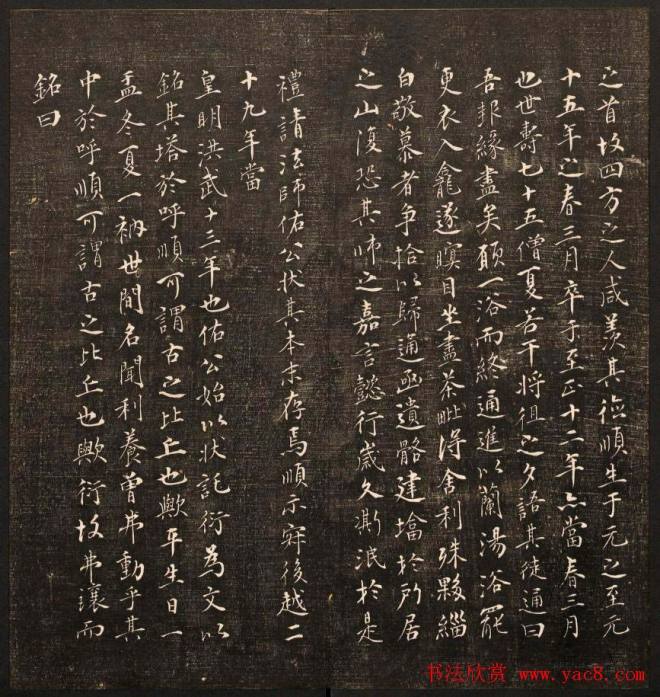 之首故四方之人咸羡其德順生于元之至元
十五年之春三月卒于至正十二年亦當春三月
也世壽七十五僧夏若干将徂之夕語其徒通曰
吾報緣盡矣願一浴而終通進以蘭湯浴罷
更衣入龕遂瞑目坐盡茶毗得舍利殊夥緇
白敬慕者爭拾以歸通函遺骼建塔於所居
之山復恐其師之嘉言懿行歲久澌泯於是
禮請法師佑公状其本末存焉順示寂後越二
十九年當
皇明洪武十三年也佑公始以状託衍為文以
銘其塔於呼順可謂古之比丘也歟平生日一
盂冬夏一衲世間名聞利養曾弗動乎其
中於呼順可謂古之比丘也歟衍故弗讓而
銘曰
书法欣赏 www.yac8.com